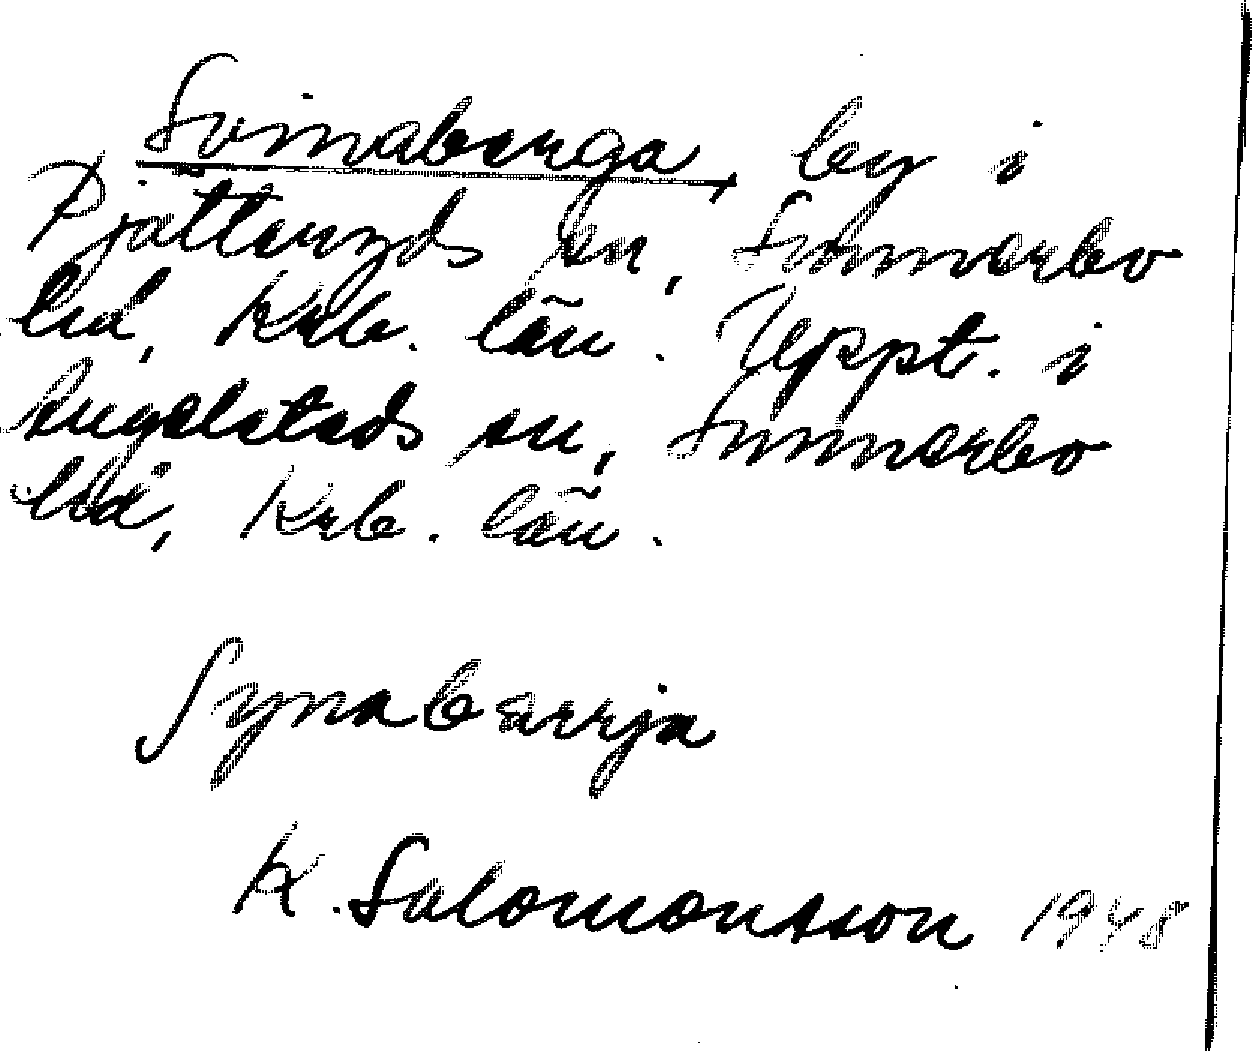 Svinaberga, by i
Pjätteryds sn, Sunnerbo
hd, Krb. län. Uppt. i
Angelstads sn, Sunnerbo
hd, Krb. län.
Synabærrja
K. Salomonsson 1948